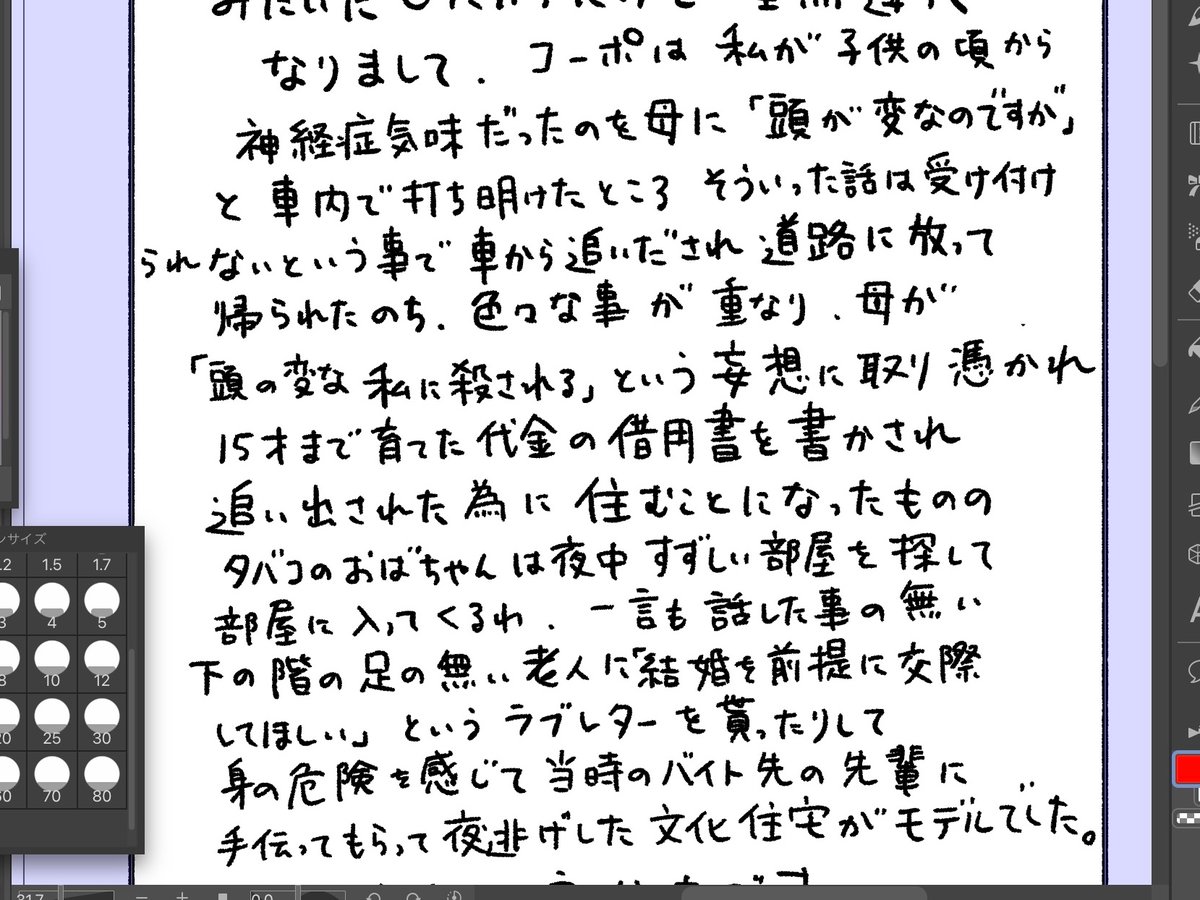 なりまして. コーポは 私が 子供の頃から
神経症気味だったのを母に「頭が変なのですが」
と車内で打ち明けたところ そういった話は受け付け
られないという事で車から追いだされ道路に放って
帰られたのち. 色々な事が重なり. 母が
「頭の変な私に殺される」という妄想に取り憑かれ
15才まで育てた代金の借用書を書かされ
追い出された為に住むことになったものの
タバコのおばちゃんは夜中すずしい部屋を探して
部屋に入ってくるわ. 一言も話した事の無い
下の階の足の無い老人に「結婚を前提に交際
してほしい」というラブレターを貰ったりして
身の危険を感じて当時のバイト先の先輩に
手伝ってもらって夜逃げした文化住宅がモデルでした。
ンサイズ
1.5 1.7
3 4 5
8 10 12
25 30
70 80